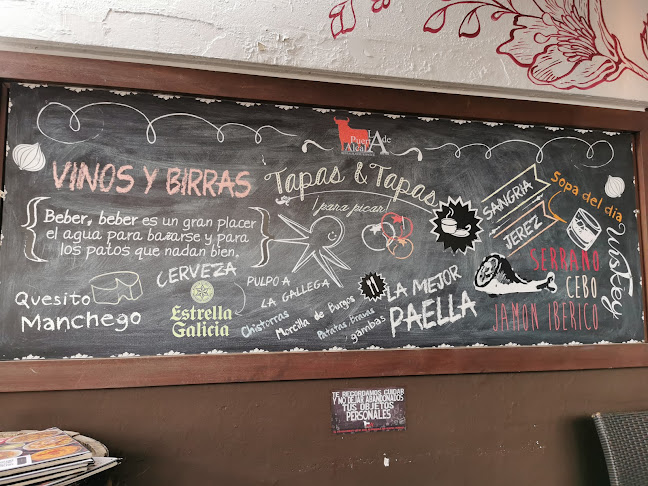 VINOS Y BIRRAS
Beber, beber es un gran placer
el agua para bañarse y para
los patos que nadan bien.
Quesito
Manchego
CERVEZA
Estrella
Galicia
LA
Puerta de
Alcalá
Tapas & Tapas
¡para picar!
PULPO A
LA GALLEGA
Chistorras
Morcilla de Burgos
Patatas bravas
gambas
LA MEJOR
PAELLA
SANGRIA
JEREZ
Sopa del día
Wiskey
SERRANO
CEBO
JAMON IBERICO
TE RECORDAMOS CUIDAR
Y NO DEJAR ABANDONADOS
TUS OBJETOS
PERSONALES